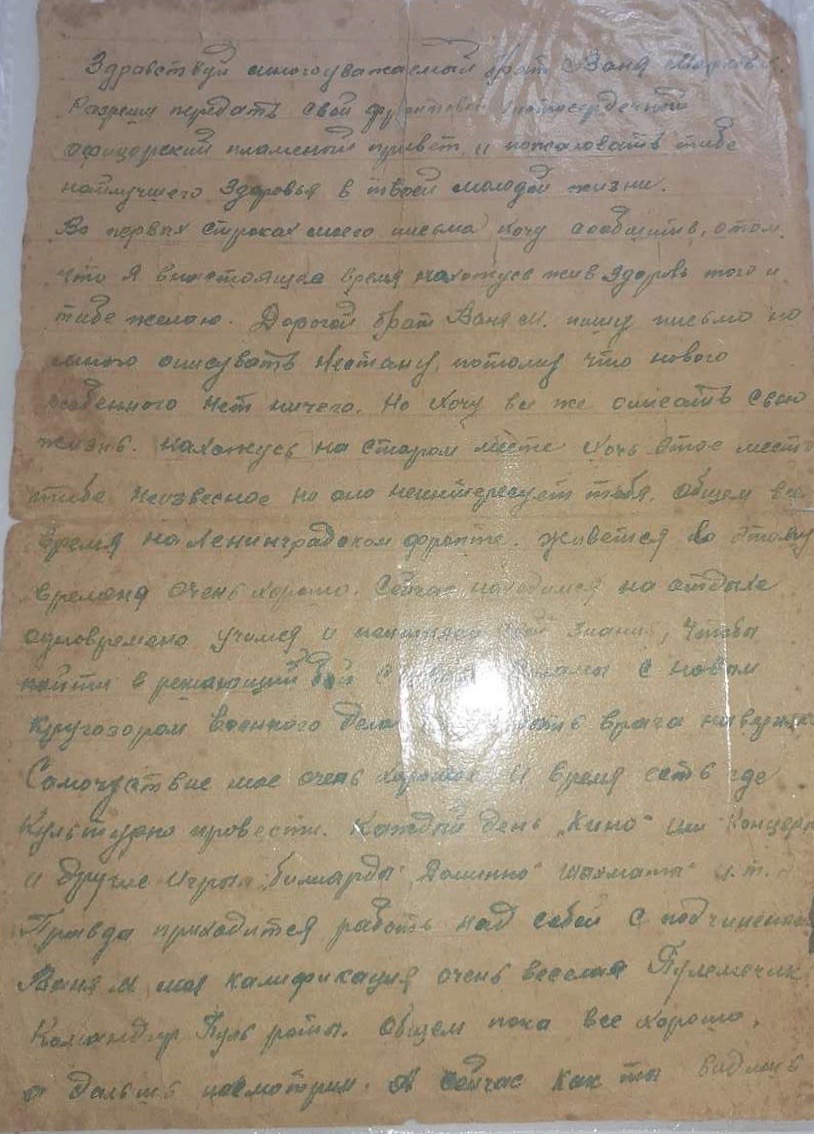 Здравствуй многоуважаемый брат Ваня
Разреши передать свой фронтовой чистосердечный
офицерский пламеный привет и пожаловать тибе
наилучшего здоровья в твоей молодой жизни.
Во первых строках моего письма хочу сообщить, отом.
что я внастоящее время нахожусь жив здоровь того и
тибе желаю. Дорогой брат Ваня М. пишу письмо но
много описувать нестану, потому что нового
особенного нет ничего. Но хочу все же описать свою
жизнь. Нахожусь на старом месте хоть этое место
тибе неизвесное но оно неинтересует тебя. Общем все
время на Ленинградском фронте. живется по этому
времяни очень хорошо. Сейчас находимся на отдыхе
одновремено учимся и свой знания, чтобы
пойти в решающий бой с с новым
кругозором военного дела врага
Самочуствие мое очень хорошое и время есть где
культурно провести. Каждый день „Кино" или Концерт
и другие игры „билиарды" „Домінно" шахматы" и.т.д
Правда приходится работь над собой с подчиненно
Ваня М. моя калификация очень веселая Пулеметчик
Командир Пуль роты. Общем пока все хорошо,
а дальшь посмотрим. А сейчас как ты видишь